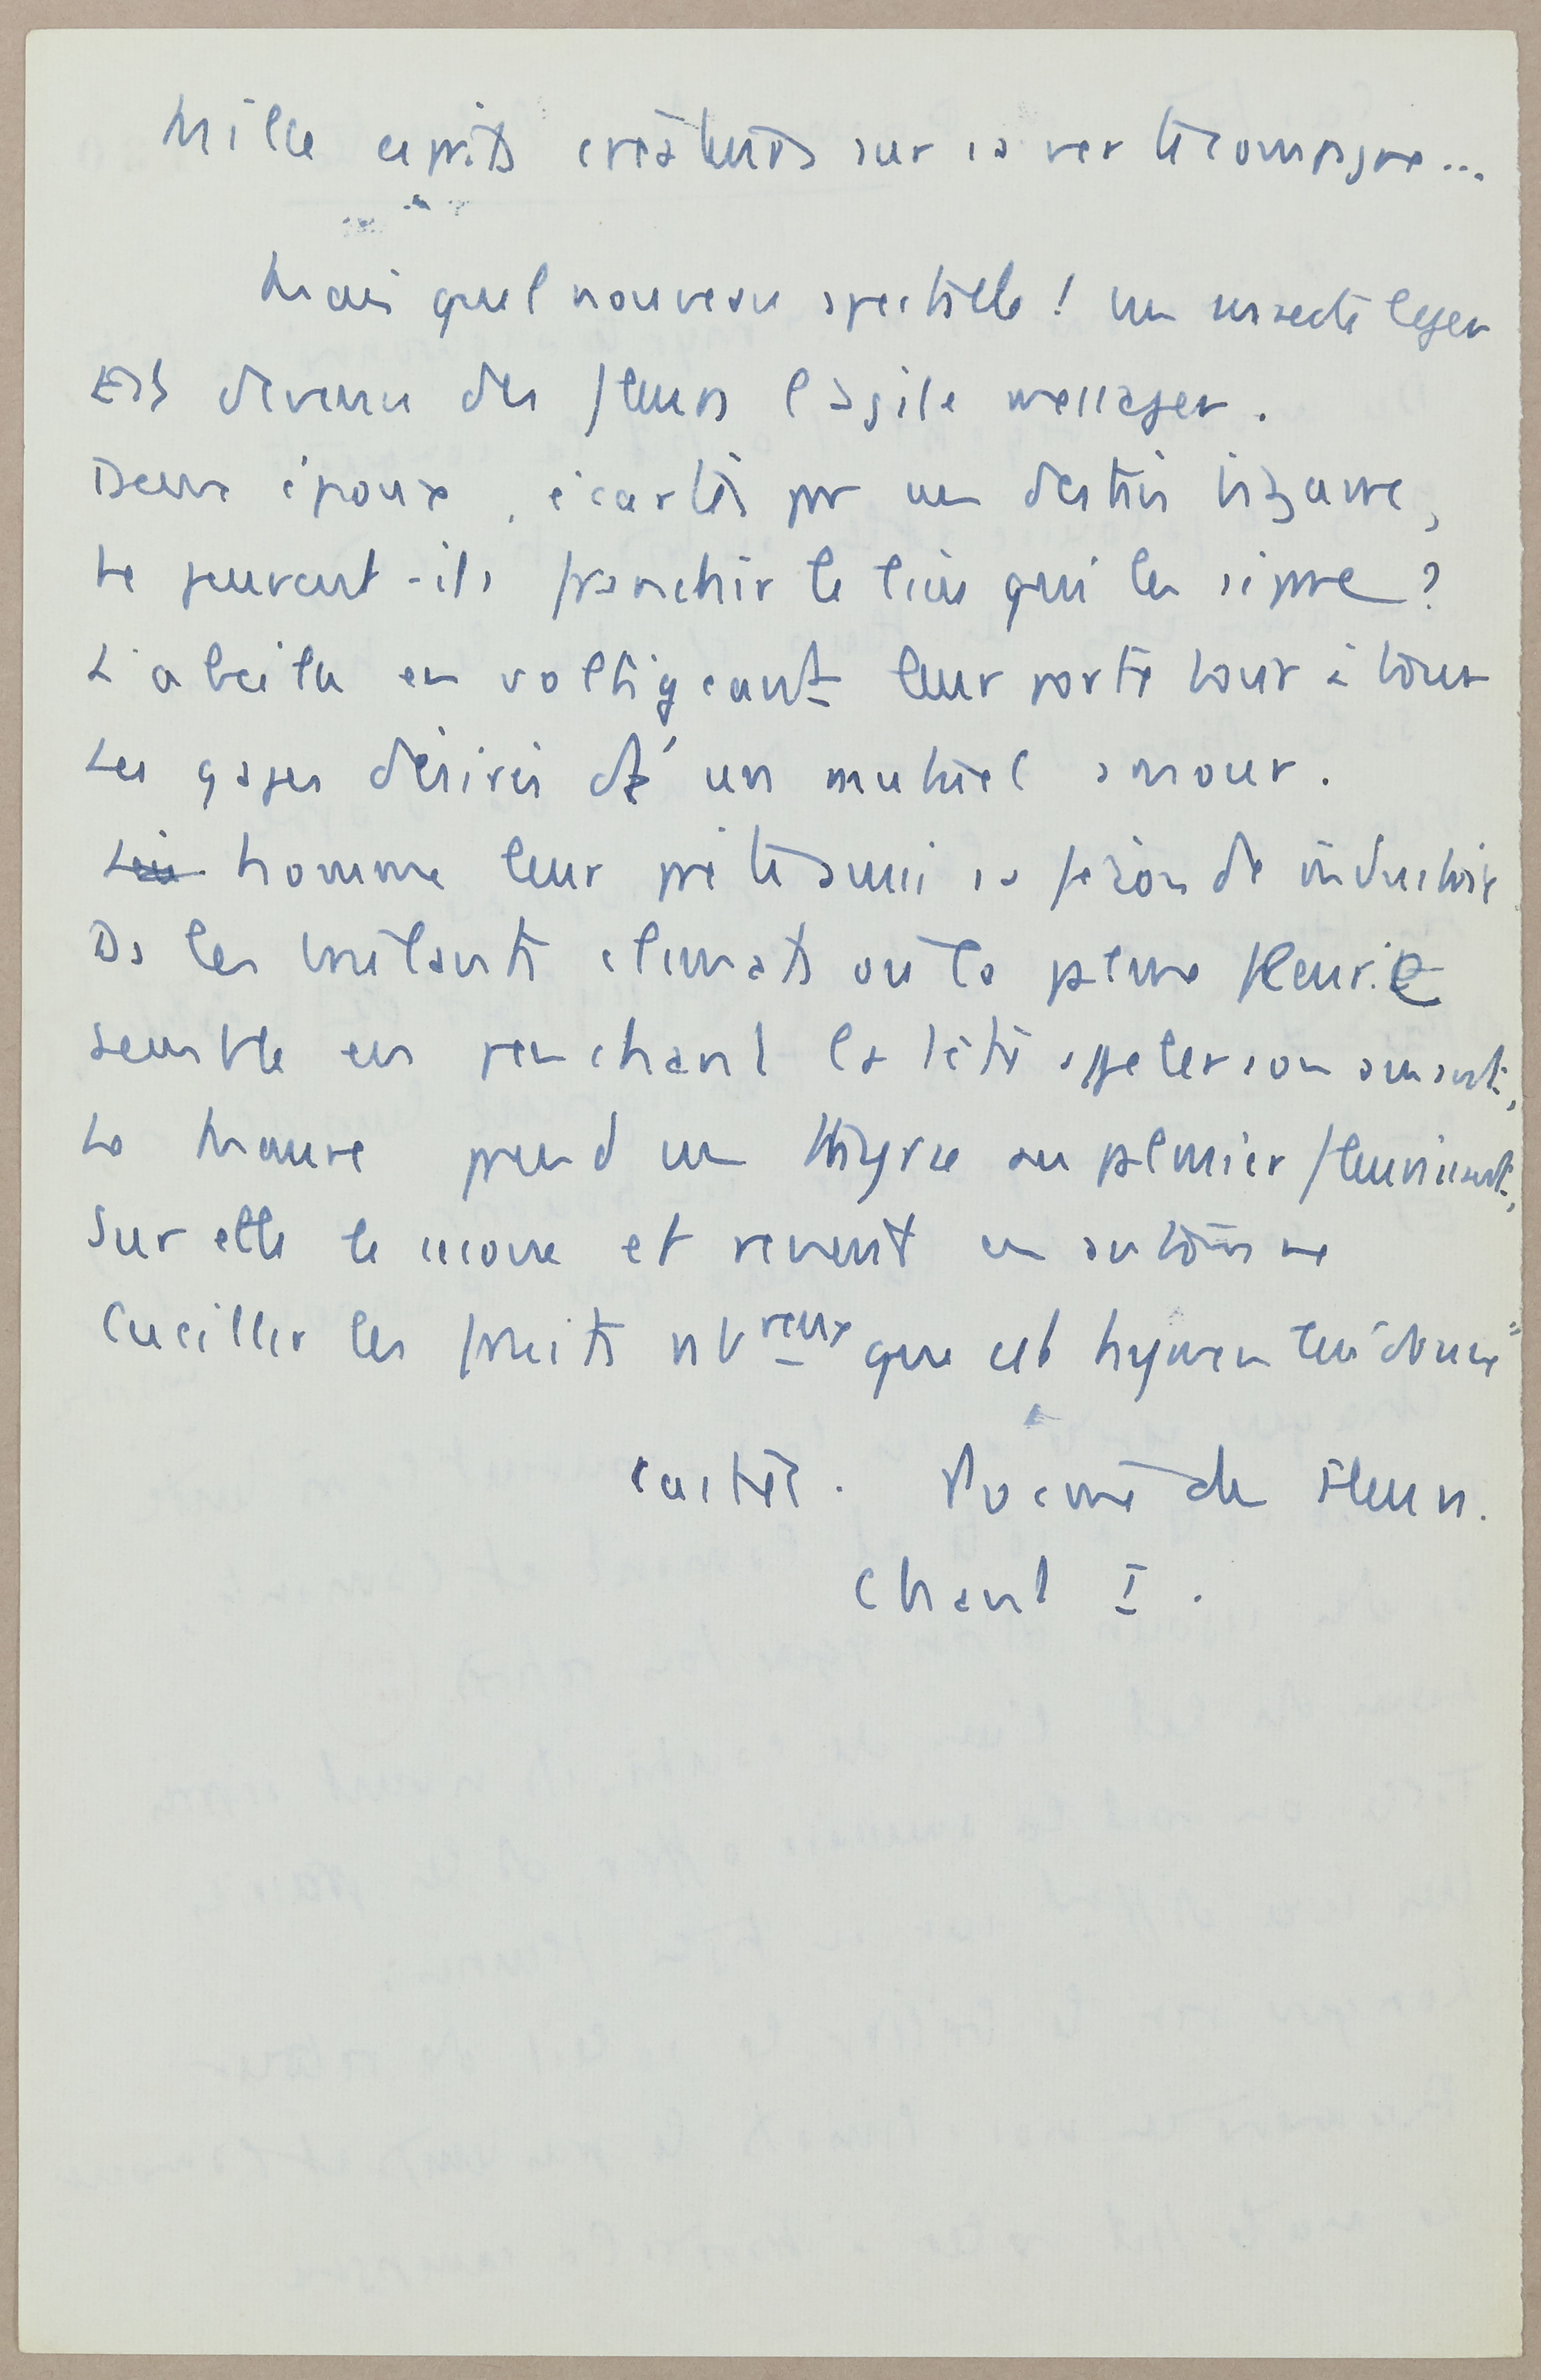 Mille esprits créateurs sur sa verte compagne...
Mais quel nouveau spectacle ! un insecte léger
Est devenu des fleurs l'agile messager.
Deux époux, écartés par un destin bizarre,
Ne peuvent-ils franchir le lieu qui les sépare ?
L'abeille en voltigeant leur porte tour à tour
Les gages désirés d'un mutuel amour.
L'homme leur prête aussi sa féconde industrie
Ds les brûlants climats où la palme fleurie
semble en penchant la tête appeler son amant,
Le Maure prend un thyrse au palmier fleurissant,
Sur elle le secoue et revient en automne
Cueillir les fruits nbreux que cet hymen lui donne"
Castel. Poème des Fleurs.
Chant I.